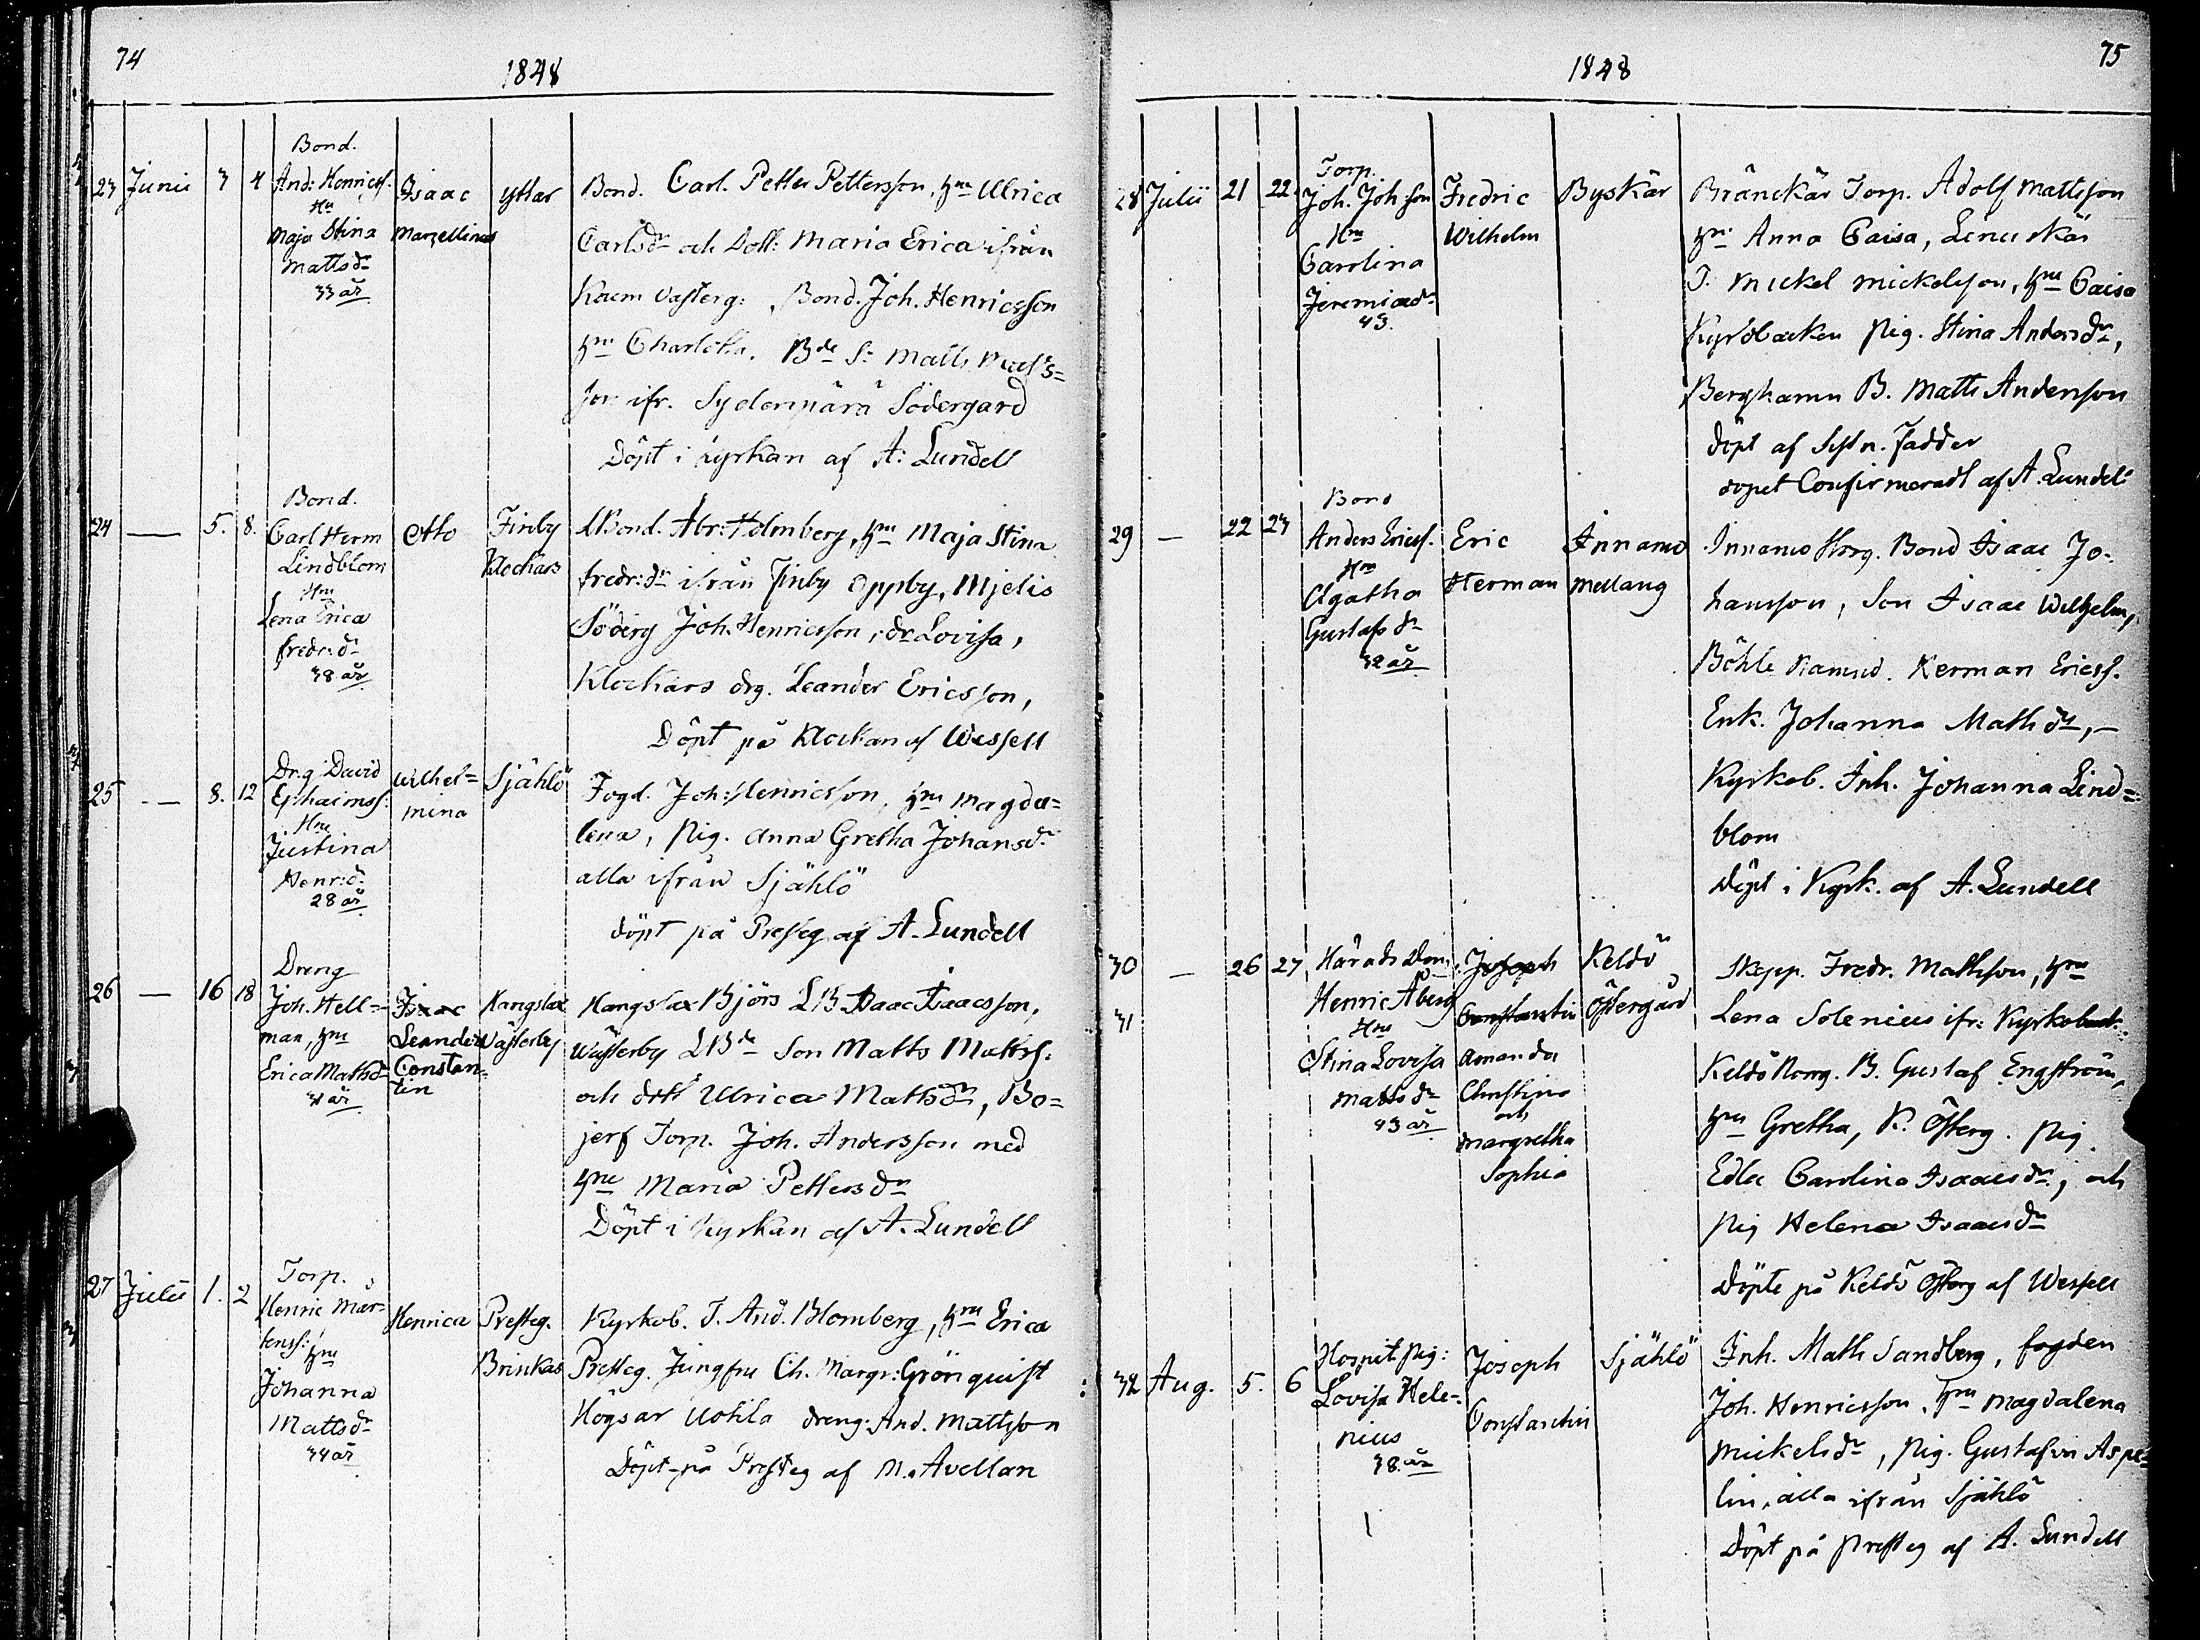 74
1848
23 Junii 3 4
Bond.
And: Henricss.
Hu
Maja Stina
Mattsdr
33 år
Isaac
Marzellinus
yttar
Bond. Carl Petter Pettersson, hu Ulrica
Carlsdr och Dott: Maria Erica ifrån
Bond. Joh. Henricsson
hu Charlotta. Bde S: Matts
son ifr. Södergard
Döpt i kyrkan af A: Lundell
24 — 5. 8.
Bond.
Carl Herm
Lindblom
Hu
Lena Erica
fredr:dr
38 år
Otto
Finby
Klockars
LBond. Abr: Holmberg, hu Maja Stina
fredr:dr ifrån Finby Oppby, Mjelis
Söderg Joh. Henricsson, dr Lovisa,
Klockars drg. Leander Ericsson,
Döpt på Klockan af Wessell
25 — 8. 12
Drg David
Ephaimss:
Hu
Justina
Henr:dr
28 år
Wilhel=
mina
Själö
Fogd. Joh: Henricsson, hu Magda=
lena, Pig. Anna Gretha Johansdr
alla ifrån Själö
döpt på Presteg af A. Lundell
26 — 16 18
Dreng
Joh. Hell=
man, hu
Erica Mattsdr
31 år
Isaac
Leander
Constan=
tin
Kangslax
Wästerby
Kangslax Björs LB Isaac Isaacsson,
Wästerby LBde Son Matts Mattss:
och dott Ulrica Mattsdr, Bo=
jerf Torp. Joh. Andersson med
hu Maria Pettersdr
Döpt i kyrkan af A. Lundell
27 Julii 1. 2
Torp.
Henric Mår-
tenss: hu
Johanna
Mattsdr
34 år
Henrica
Presteg.
Brinkas
Kyrkob. T. And. Blomberg, hu Erica
Presteg. Jungfru Ch. Margr: Grönquist
Högsar Uotila dreng: And. Mattsson
Döpt på Presteg af M. Avellan
75
1848
28 Julii 21 22
Torp.
Joh. Johsson
Hu
Carolina
Jeremiaedr
43.
Fredric
Wilhelm
Byskär
Bränskär Torp. Adolf Mattsson
hu Anna Caisa, Lenuskär
T. Mickel Mickelsson, hu Caisa
Kyrkbacken Pig. Stina Andersdr,
Berghamn B. Matts Andersson
döpt af Fadder
dopet Confirmeradt af A. Lundell
29 — 22 23
Bond
Anders Ericss.
Hu
Agatha
Gustafsdr
32 år
Eric
Herman
Innamo
Mellang
Innamo Bond Isaac Jo-
hansson, Son Isaac Wilhelm,
Böhle Herman Ericss.
Enk. Johanna Mattsdr, —
Kyrkob. Inh. Johanna Lind=
blom
Döpt i Kyrk. af A. Lundell
30 — 26 27
31
Härads Dom.
Henric Åberg
Hu
Stina Lovisa
Mattsdr
43 år
Joseph
Constantin
Amanda
Christina
och
Margretha
Sophia
Keldö
Östergård
Skepp. Fredr. Mattsson, hu
Lena Solenius ifr: Kyrkoback.
Keldö Norrg. B. Gustaf Engström,
hu Gretha, K. Österg. Pig
Edla Carolina Isaacsdr, och
Pig Helena Isaacsdr
Döpte på Keldö Österg af Wessell
32 Aug. 5. 6
Hospit. Pig:
Lovisa Hele-
nius
38 år
Joseph
Constantin
Själö
Inh. Matts Sandberg, fogden
Joh. Henricsson, hu Magdalena
Mickelsdr, Pig. Gustafva Aspe=
lin, alla ifrån Själö
Döpt på Presteg af A. Lundell